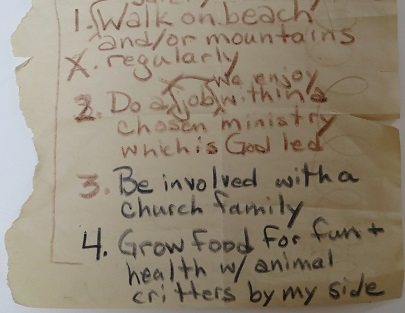 1. Walk on beach
and/or mountains
X. regularly
We enjoy
2. Do a job within a
chosen ministry
which is God led
3. Be involved with a
church family
4. Grow food for fun +
health w/ animal
critters by my side